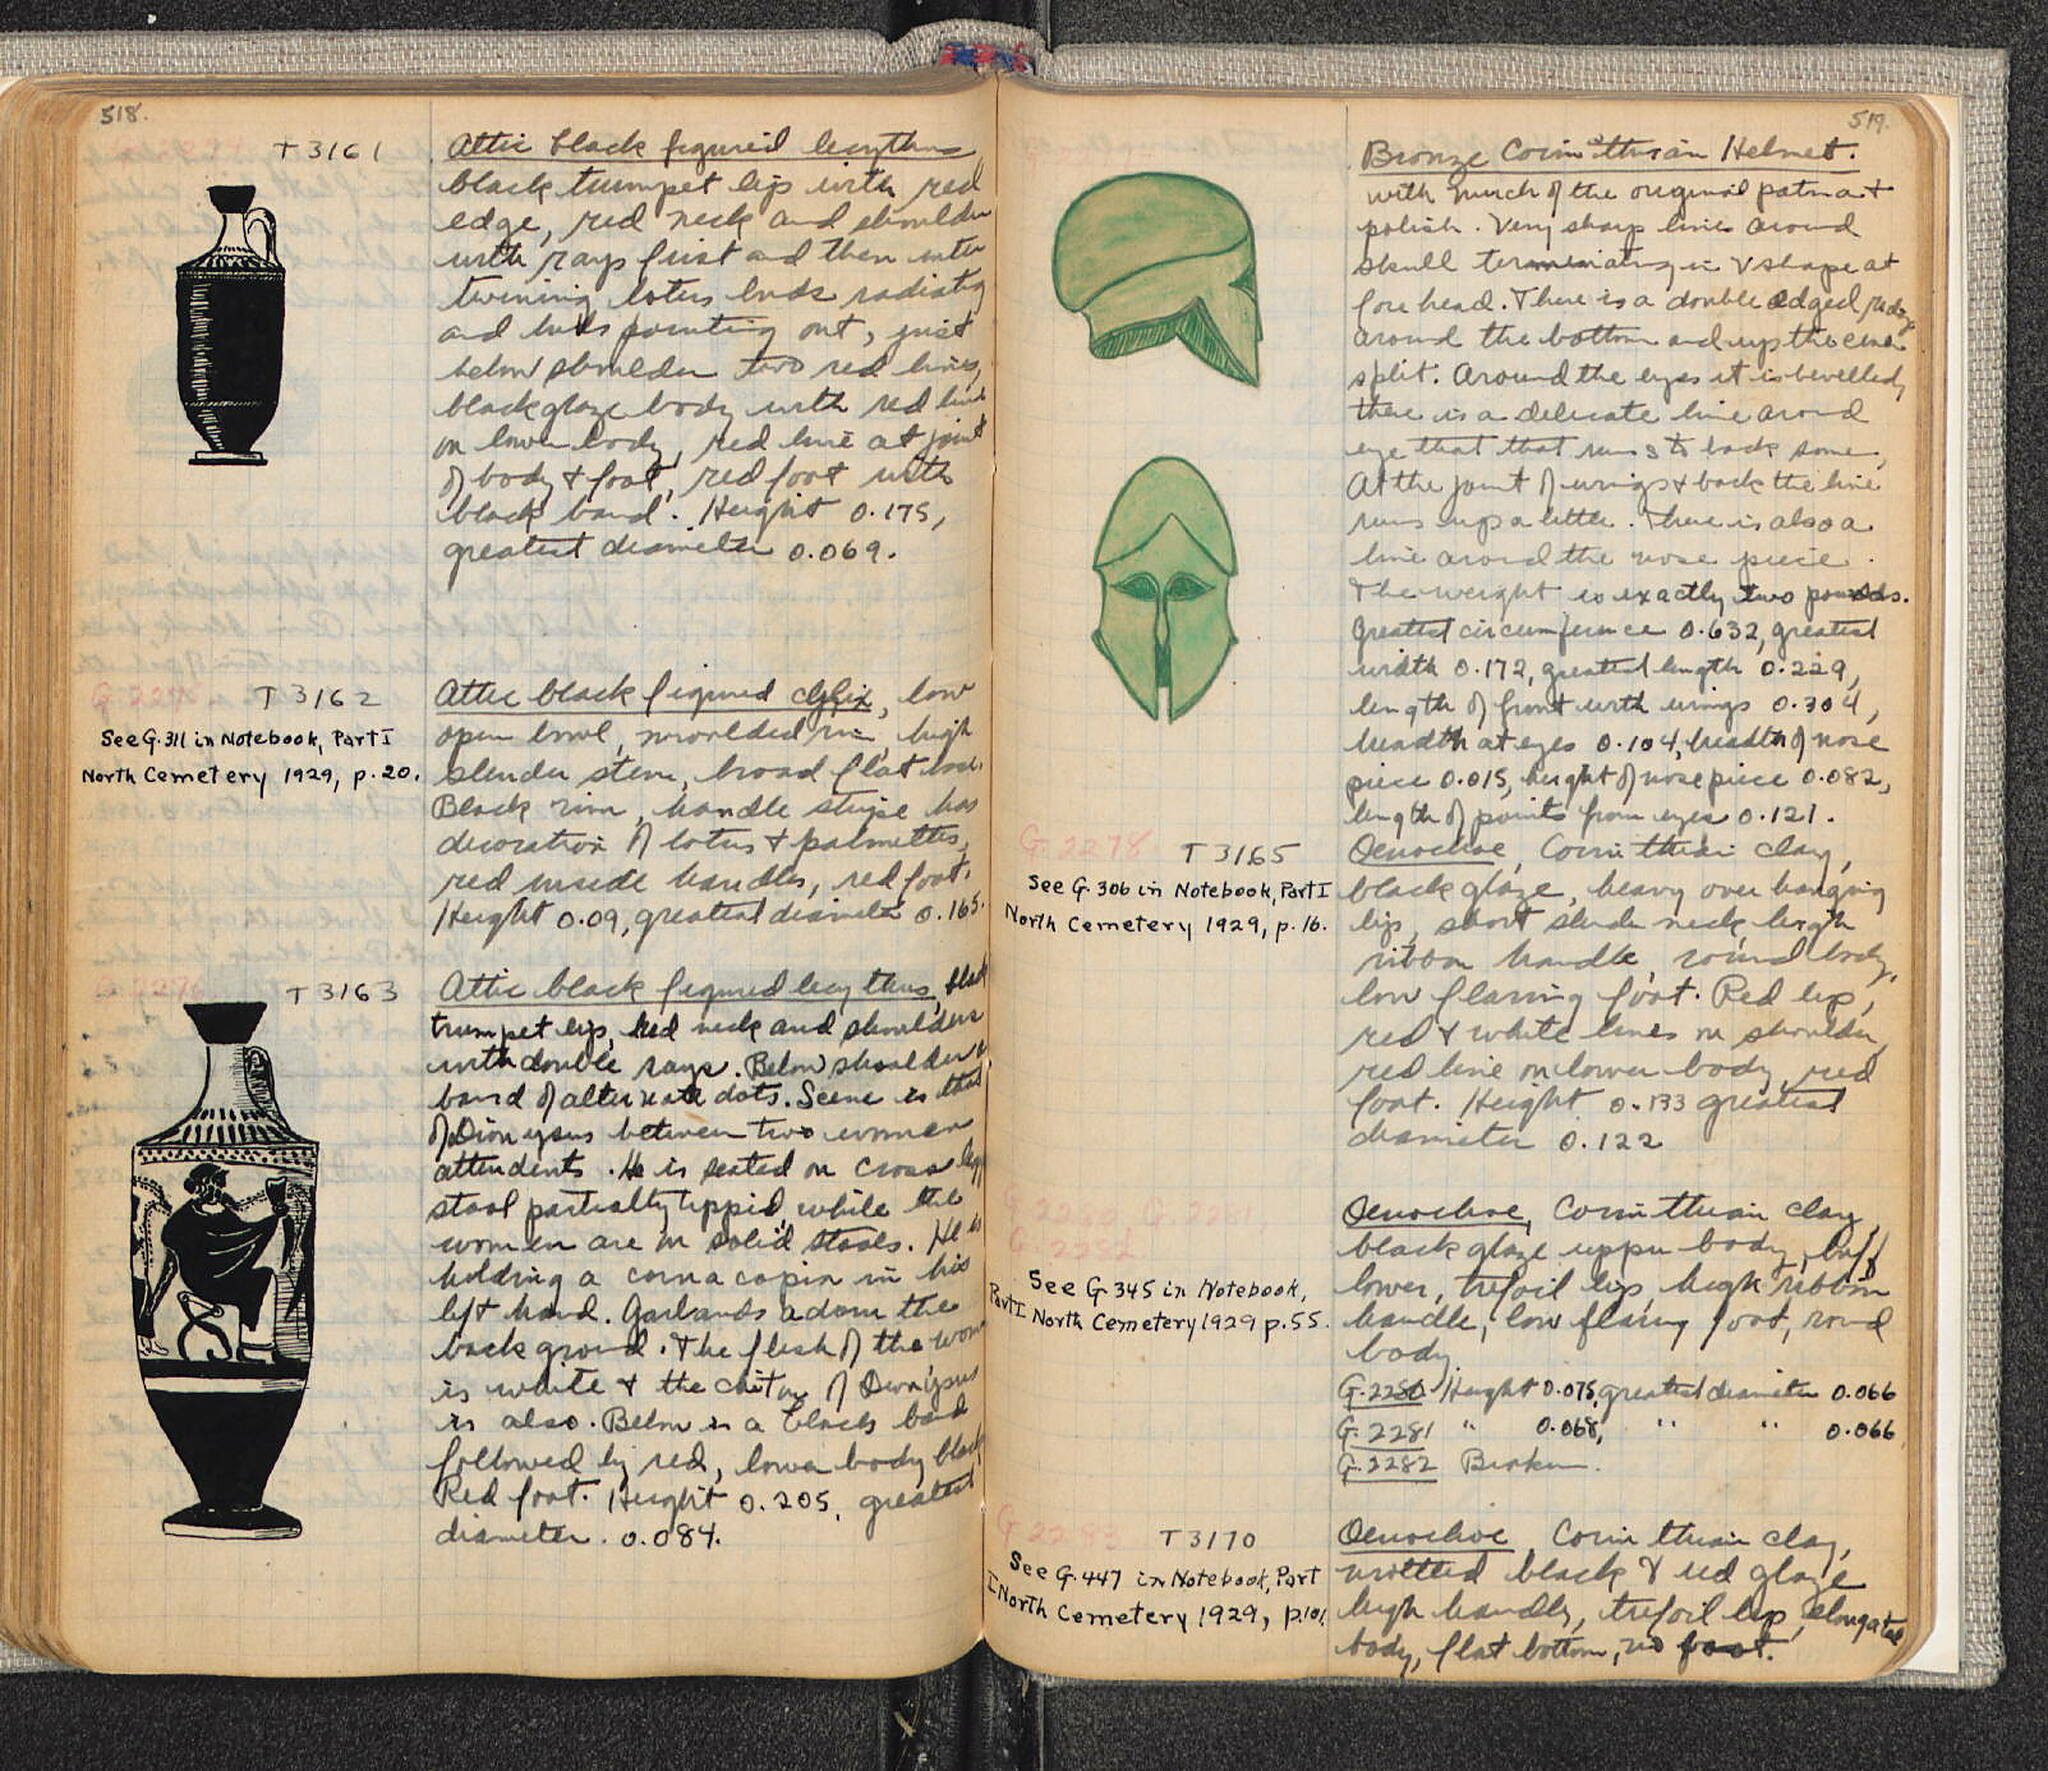 518.
T 3161
Attic black figured lecythus
black trumpet lip with red
edge, red neck and shoulder
with rays first and then inter
twining lotus buds radiating
and buds pointing out, just
below shoulder two red lines,
black glaze body with red line
on lower body, red line at joint
of body & foot, red foot with
black band. Height 0.175,
greatest diameter 0.069.
T 3162
See G. 311 in Notebook, Part I
North Cemetery 1929, p. 20.
Attic black figured cylix, low
open bowl, moulded rim, high
slender stem, broad flat
Black rim, handle stripe has
decoration of lotus & palmettes,
red inside handles, red foot.
Height 0.09, greatest diameter 0.165.
T 3163
Attic black figured lecythus, black
trumpet lip, red neck and shoulders
with double rays. Below shoulder a
band of alternate dots. Scene is that
of Dionysus between two women
attendents. He is seated on cross leg
stool partially tipped, while the
women are on solid stools. He is
holding a cornacopia in his
left hand. Garlands adorn the
back ground. The flesh of the wom
is white & the chiton of Dionysus
is also. Below is a black band
followed by red, lower body black
Red foot. Height 0.205, greatest
diameter. 0.084.
519.
Bronze Corinthian Helmet.
with much of the original patina &
polish. Very sharp lines around
skull terminating in V shape at
fore head. There is a double edged ridge
around the bottom and up the
split. Around the eyes it is bevelled,
there is a delicate line around
eye that that runs to back some,
At the joint of wings & back the line
runs up a little. There is also a
line around the nose piece.
The weight is exactly two pounds.
Greatest circumference 0.632, greatest
width 0.172, greatest length 0.229,
length of front with wings 0.304,
breadth at eyes 0.104, breadth of nose
piece 0.015, height of nose piece 0.082,
length of points from eyes 0.121.
G. 2278
T 3165
See G. 306 in Notebook, Part I
North Cemetery 1929, p. 16.
Oenochoe, Corinthian clay,
black glaze, heavy over hanging
lip, short slender neck, high
ribbon handle, round body,
low flaring foot. Red lip,
red & white lines on shoulder,
red line on lower body, red
foot. Height 0.133 greatest
diameter 0.122
G 2280, G. 2281
G. 2282
See G 345 in Notebook,
Part I North Cemetery 1929 p. 55.
Oenochoe, Corinthian clay,
black glaze upper body, buff
lower, trefoil lip, high ribbon
handle, low flaring foot, round
body.
G. 2280 Height 0.075, greatest diameter 0.066
G. 2281 " 0.068, " " 0.066
G. 2282 Broken.
G 2283
T 3170
See G. 447 in Notebook, Part
I North Cemetery 1929, p. 101.
Oenochoe Corinthian clay,
mottled black & red glaze
high handle, trefoil lip, elongated
body, flat bottom, no foot.